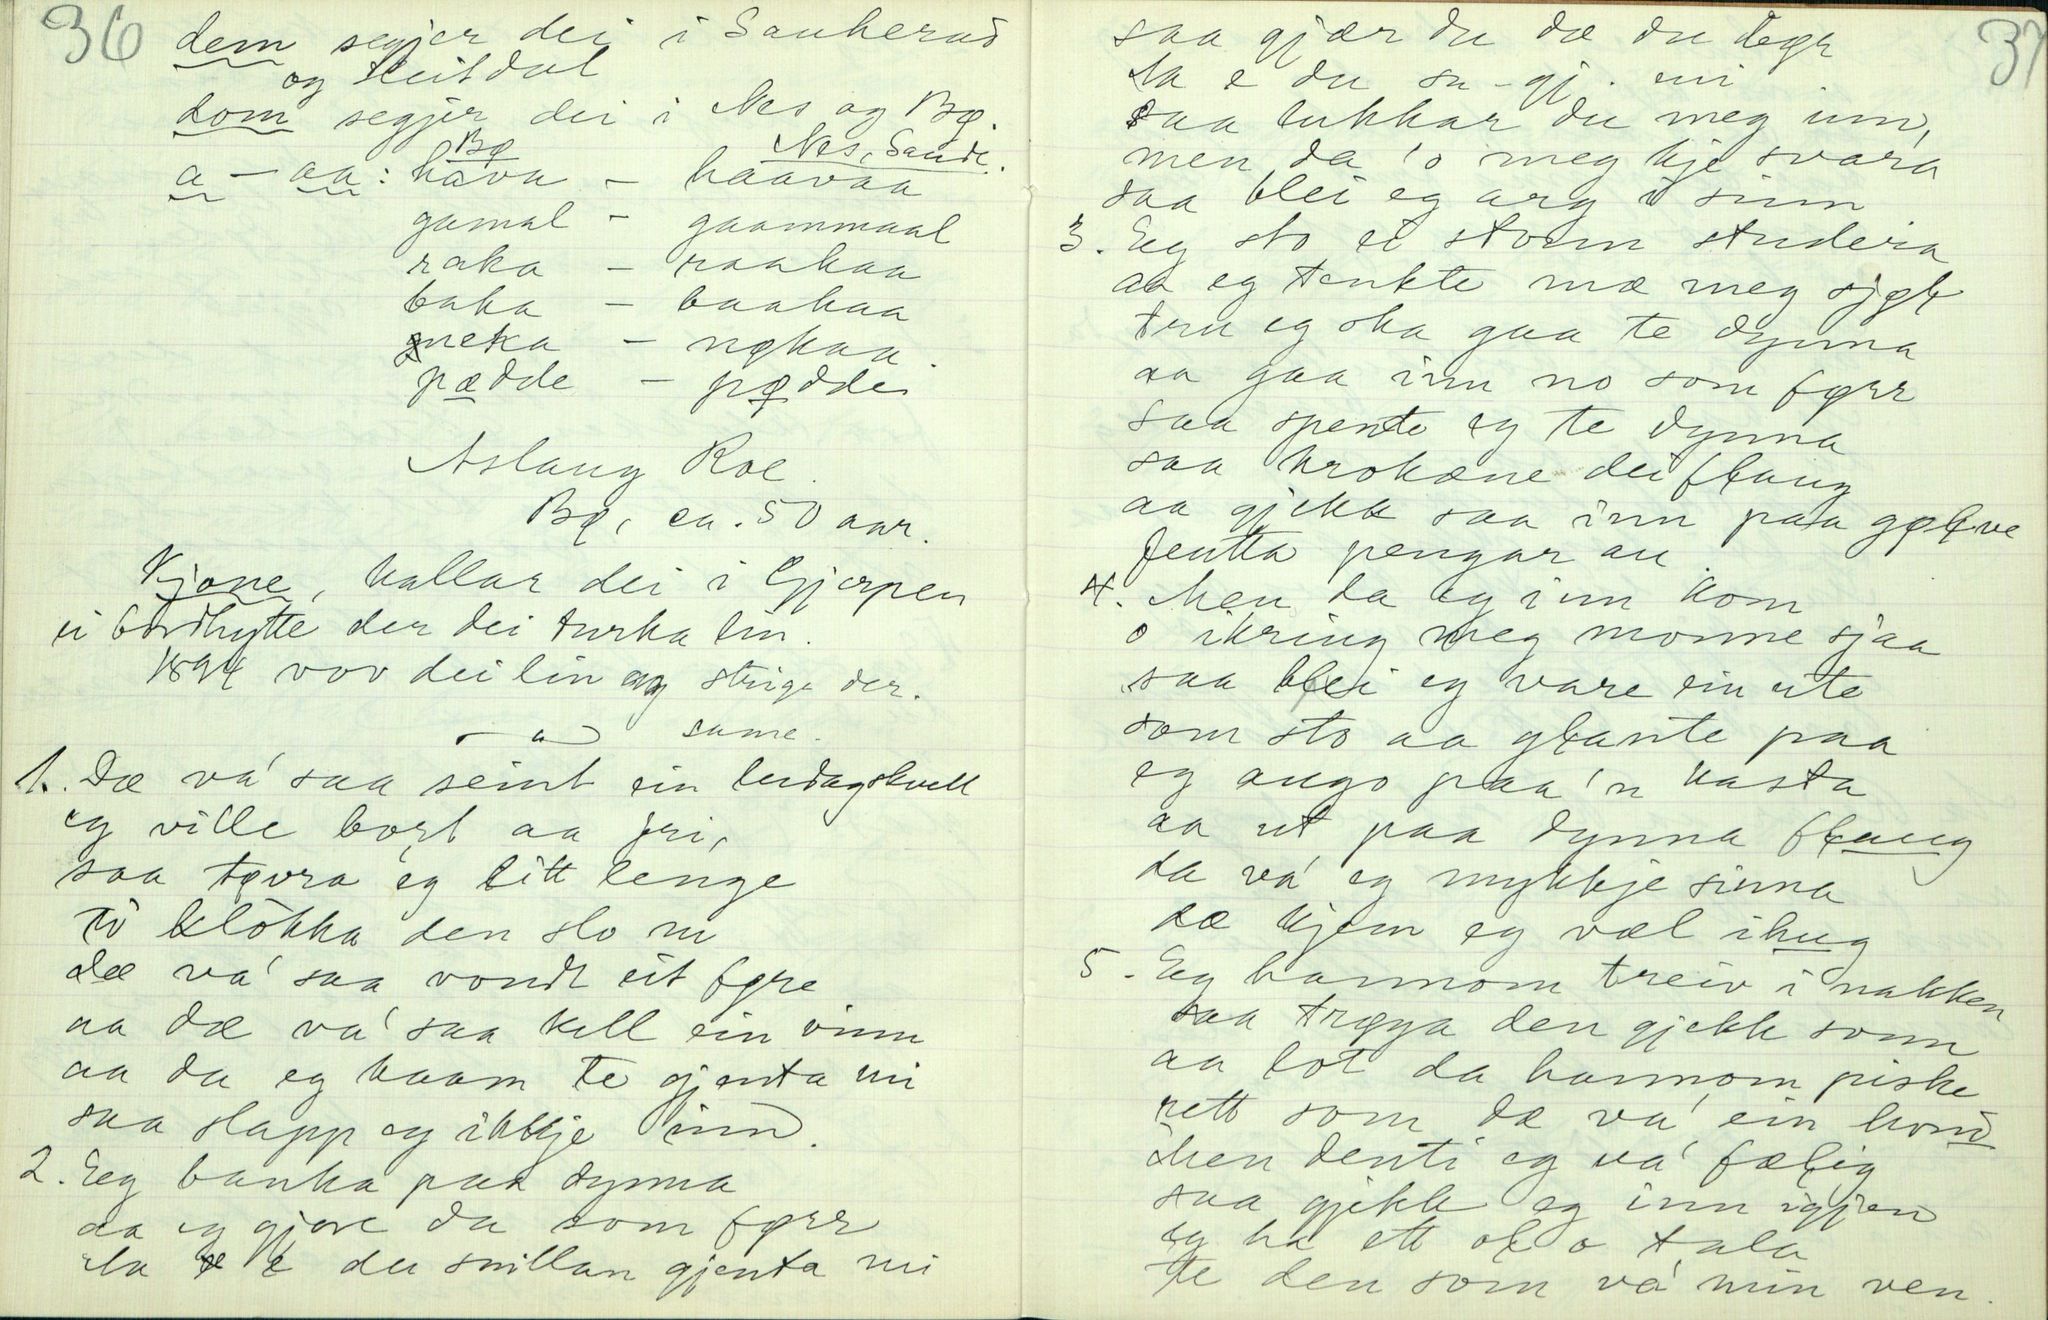 36
dem segjer dei i Sauherad
og Heitdal
dom segjer dei i Nes og Bø.
Bø Nes, Saude.
a - aa: hava - haavaa
gamal - gaammaal
raka - raakaa
baka - baakaa
neka - nøkaa
pædde - pødde
Aslaug Roe.
Bø, ca. 50 aar.
Kjone, kallar dei i Gjerpen
ei bordhytte der dei turka lin.
1894 vov dei lin og strige der.
same.
1. Dæ va' saa seint ein laudagskvell
eg ville bort aa fri,
saa tøvra eg litt lenge
ti klokka den slo ni
dæ va' saa vondt eit føre
aa dæ va' saa kall ein vinn
aa da eg kaam te gjenta mi
saa slapp eg ikkje inn.
2. Eg banka paa dynna
aa eg gjore da som førr
Na e du snillan gjenta mi
37
saa gjær du dæ du bør
Na e du sn - gj. mi
saa lukkar du meg inn,
men da 'o meg kje svara
saa blei eg arg i sinn
3. Eg sto ei stonn studera
aa eg tenkte mæ meg sjøł
tru eg ska gaa te dynna
aa gaa inn no som førr
saa spente eg te dynna
saa krokæne dei fłaug
aa gjekk saa inn paa gołve
jentta pengar au.
4. Men da eg inn kom
o ikring meg monne sjaa
saa błei eg vare ein ute
som sto aa głante paa
eg augo paa'n kasta
aa ut paa dynna fłaug
da va' eg mykkje sinna
dæ kjem eg væl ihug
5. Eg hannom treiv i nakken
saa trøya den gjekk sonn
aa lot da hannom piske
rett som dæ va' ein hond
Men denti eg va' fælig
saa gjekk eg inn igjen
eg ha ett oł o tala
te den som va' min ven.